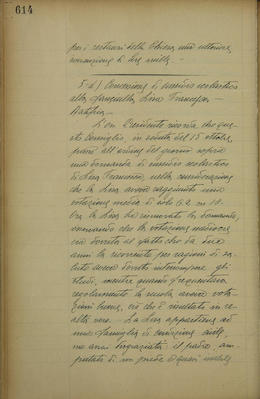 614
per i restauri della Chiesa, una ulteriore
concessione di Lire mille. -
5°-d) Concessione di sussidio scolastico
alla fanciulla Lina Francesca -
Ratifica -
L'On. Presidente ricorda che que-
sto Consiglio, in seduta del 15 ottobre,
passò all'ordine del giorno sopra
una domanda di sussidio scolastico
di Lina Francesca, nella considerazione
che la Lina aveva raggiunto una
votazione media di solo 6.2 in 10.
Ora la Lina ha rinnovato la domanda,
osservando che la votazione mediocre
era dovuta al fatto che da due
anni la ricorrente per ragioni di sa-
lute aveva dovuto interrompere gli
studi, mentre quando frequentava
regolarmente la scuola aveva voti
buoni, ciò che è risultato in re-
altà vero. - La Lina appartiene ad
una famiglia di condizione civile,
ma assai disgraziata, il padre am-
putato di un piede è quasi